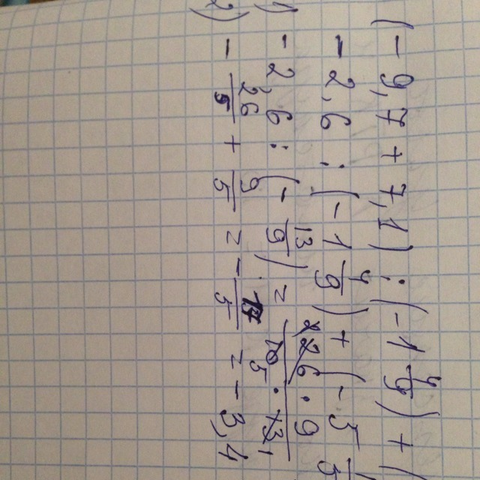 (-9,7+7,1):(-1 4/9)+(
-2,6:(-1 4/9)+(-5
1) -2,6:(-13/9)= 26·9/10·13
2) -26/5+9/5=-17/5=-3,4